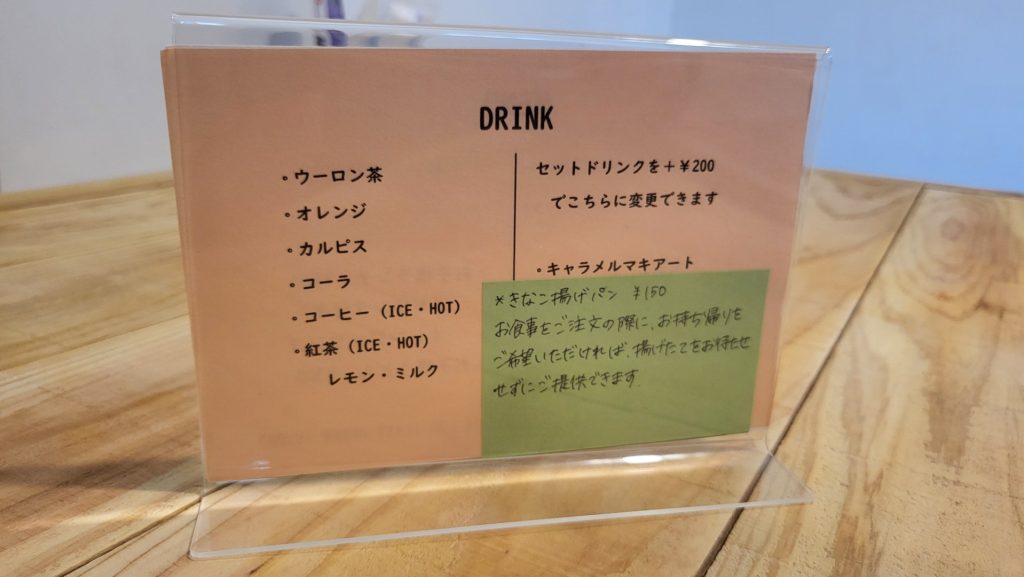 DRINK
・ウーロン茶
・オレンジ
・カルピス
・コーラ
・コーヒー（ICE・HOT）
・紅茶（ICE・HOT）
レモン・ミルク
セットドリンクを＋¥200
でこちらに変更できます
・キャラメルマキアート
*きなこ揚げパン ¥150
お食事をご注文の際に、お持ち帰りを
ご希望いただければ、揚げたてをお待たせ
せずにご提供できます。